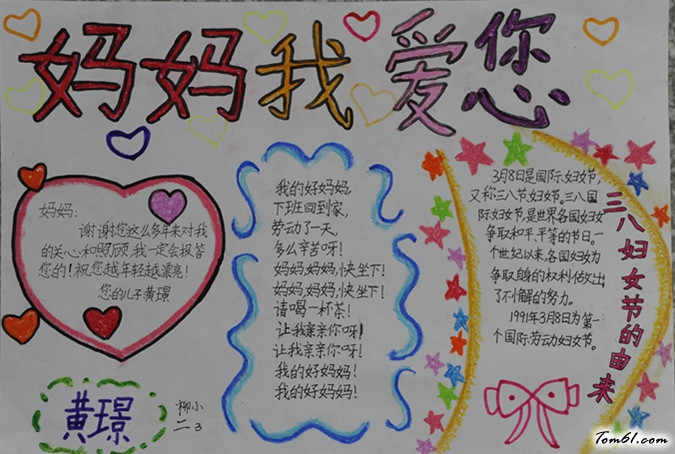 妈妈我爱您
妈妈:
谢谢您这么多年来对我
的关心和照顾,我一定会报答
您的!祝您越年轻越漂亮!
您的儿子黄璟
黄璟
柳小
二3
我的好妈妈,
下班回到家,
劳动了一天,
多么辛苦呀!
妈妈,妈妈,快坐下!
妈妈,妈妈,快坐下!
请喝一杯茶!
让我亲亲你呀!
让我亲亲你呀!
我的好妈妈!
我的好妈妈!
3月8日是国际妇女节,
又称三八节,妇女节。三八国
际妇女节,是世界各国妇女
争取和平、平等的节日。一
个世纪以来,各国妇女为
争取自身的权利做出
了不懈的努力。
1991年3月8日为第一
个国际劳动妇女节。
三八妇女节的由来
Tom61.com